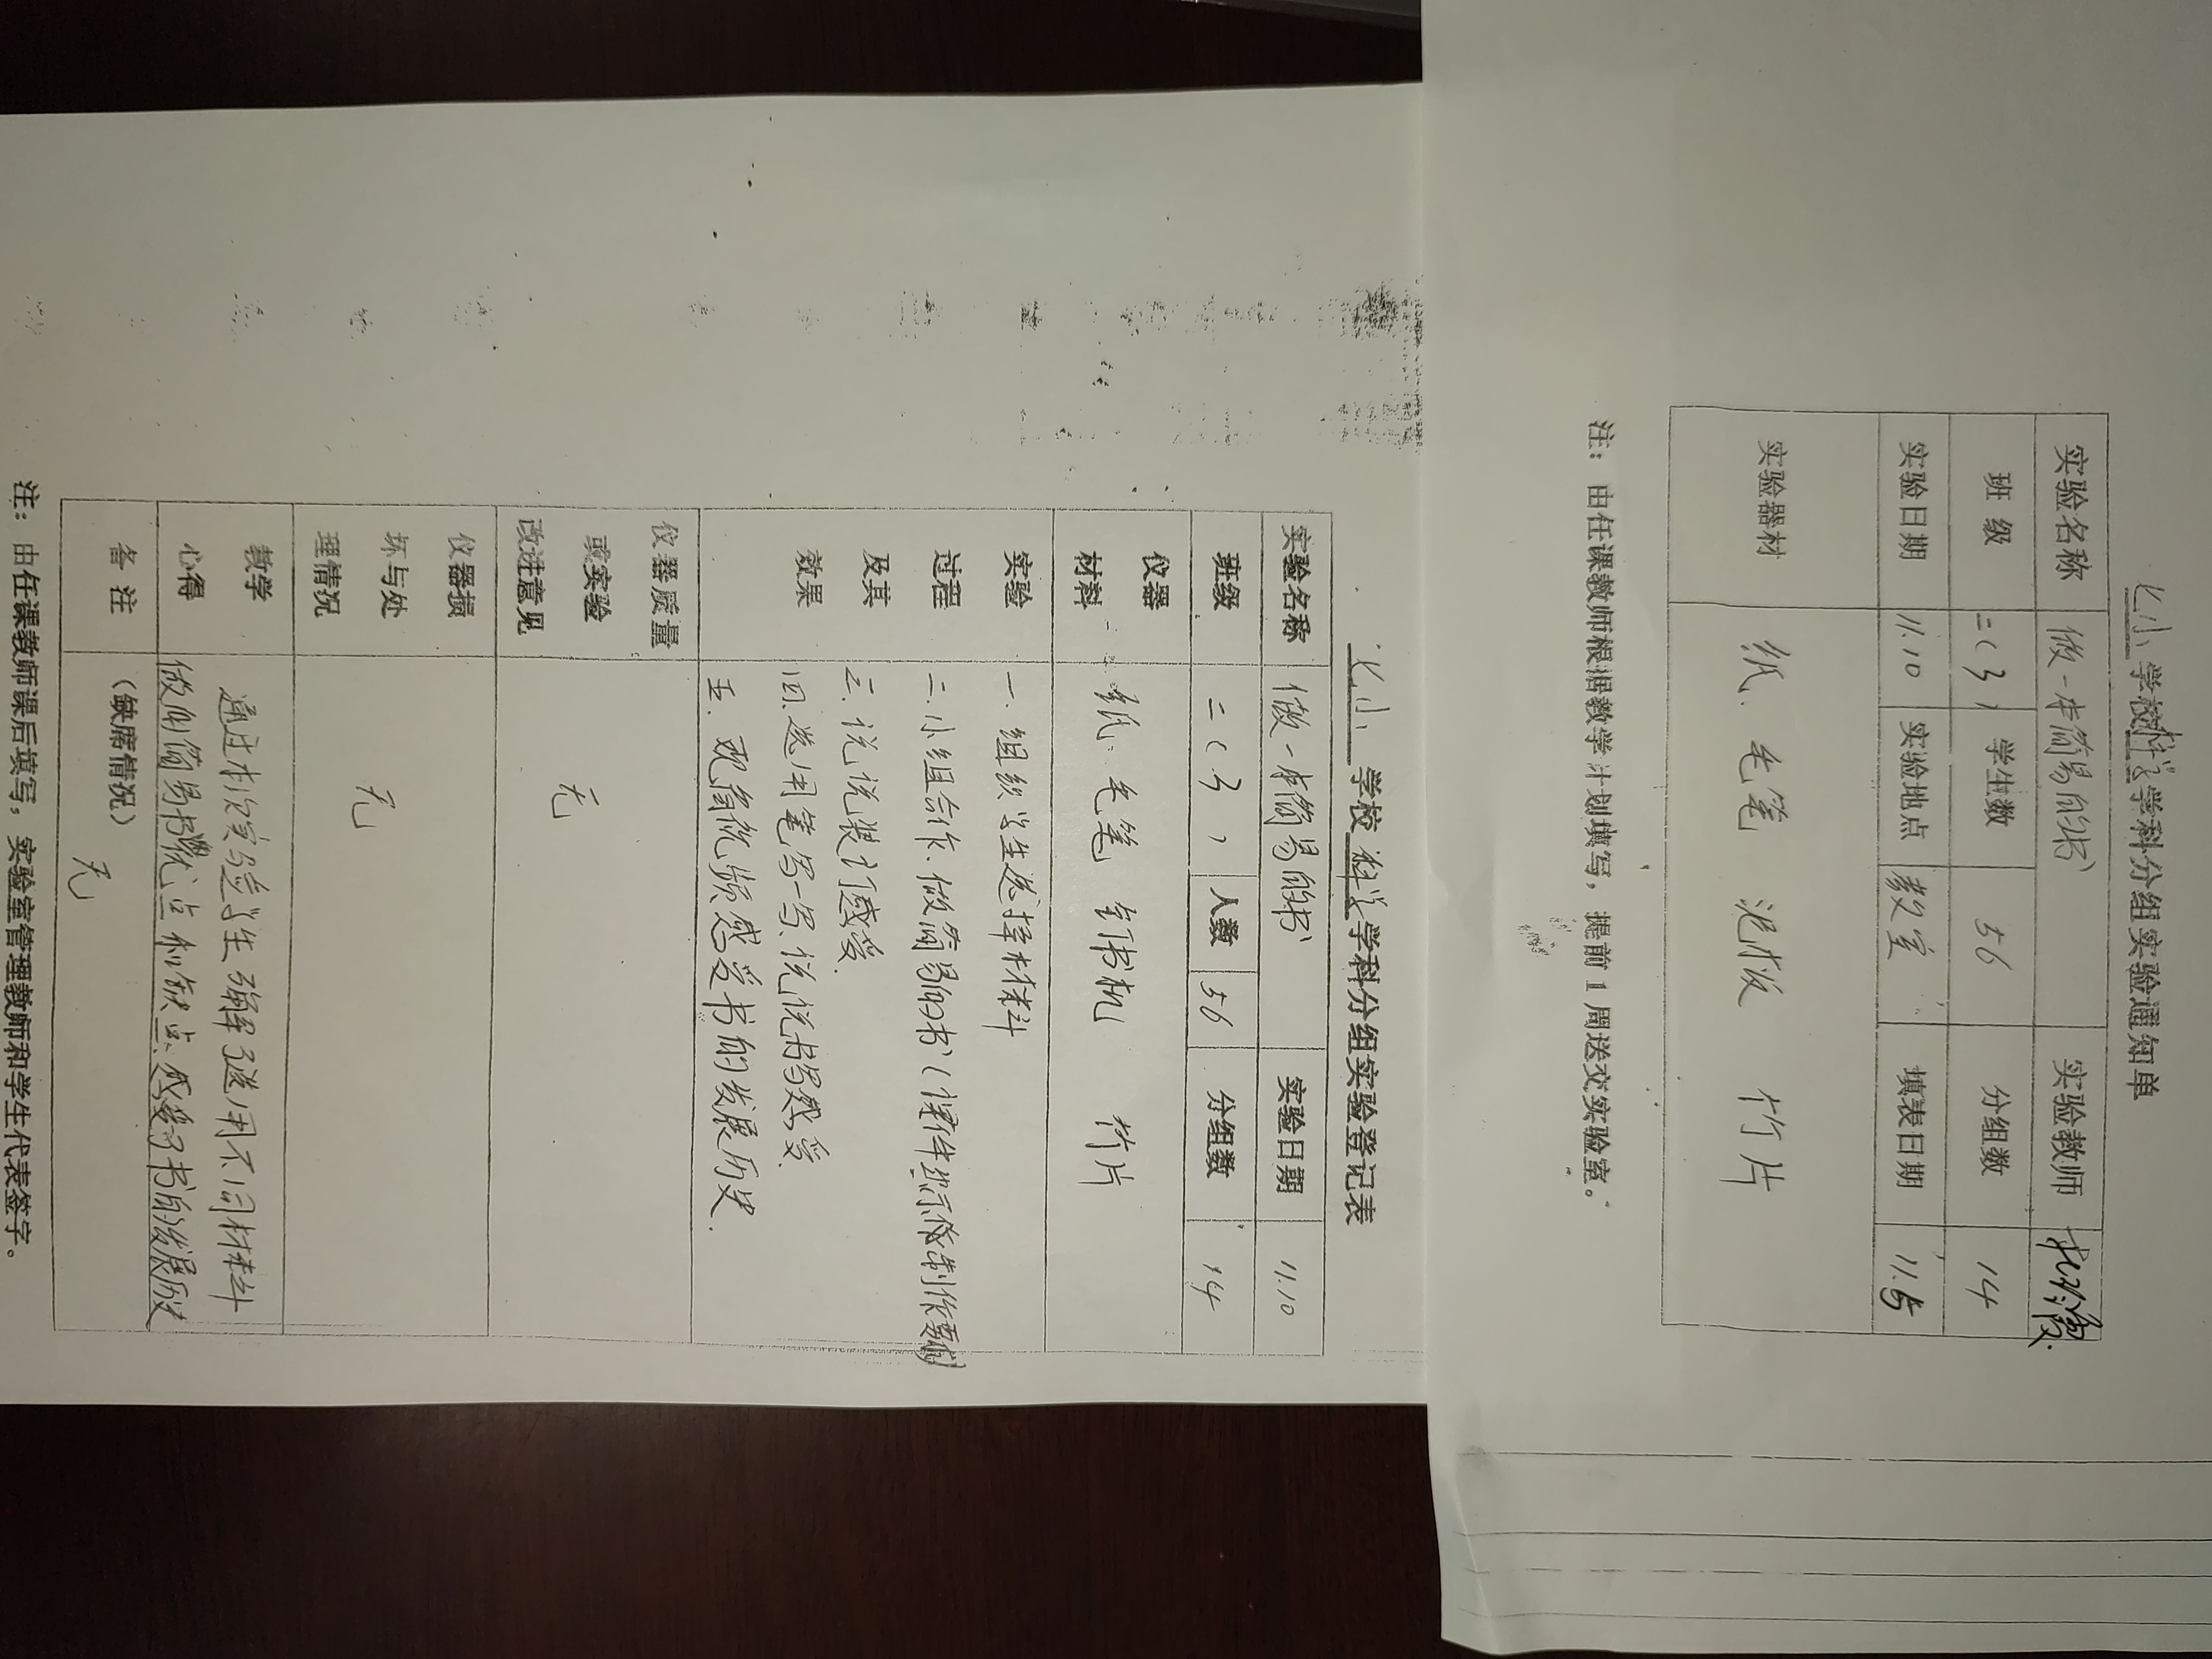 七小 学校 科学 学科分组实验通知单
实验名称 做一本简易的书 实验教师
班 级 二(3) 学生数 56 分组数 14
实验日期 11.10 实验地点 教室 填表日期 11.5
实验器材 纸、毛笔 泥板 竹片
注：由任课教师根据教学计划填写，提前1周送交实验室。
七小 学校 科学 学科分组实验登记表
实验名称 做一本简易的书 实验日期 11.10
班级 二(3) 人数 56 分组数 14
仪器
材料
纸、毛笔 钉书机 竹片
实验
过程
及其
效果
一.组织学生选择材料
二.小组合作.做简易的书(课件提示制作要领)
三.说说装订感受.
四.选用笔写一写.说说书写感受.
五.观看视频感受书的发展历史.
仪器质量
或实验
改进意见
无
仪器损
坏与处
理情况
无
教学
心得
通过本次实验学生理解了选用不同材料
做的简易书的优点和缺点.感受了书的发展历史
备 注 （缺席情况）
无
注：由任课教师课后填写，实验室管理教师和学生代表签字。